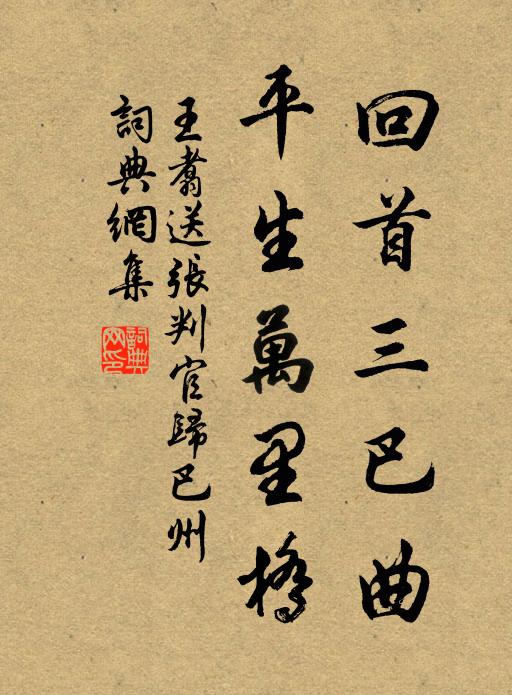 回首三巴曲
平生萬里橋
王翥送張判官歸巴州
詞典網集
詞典
网印